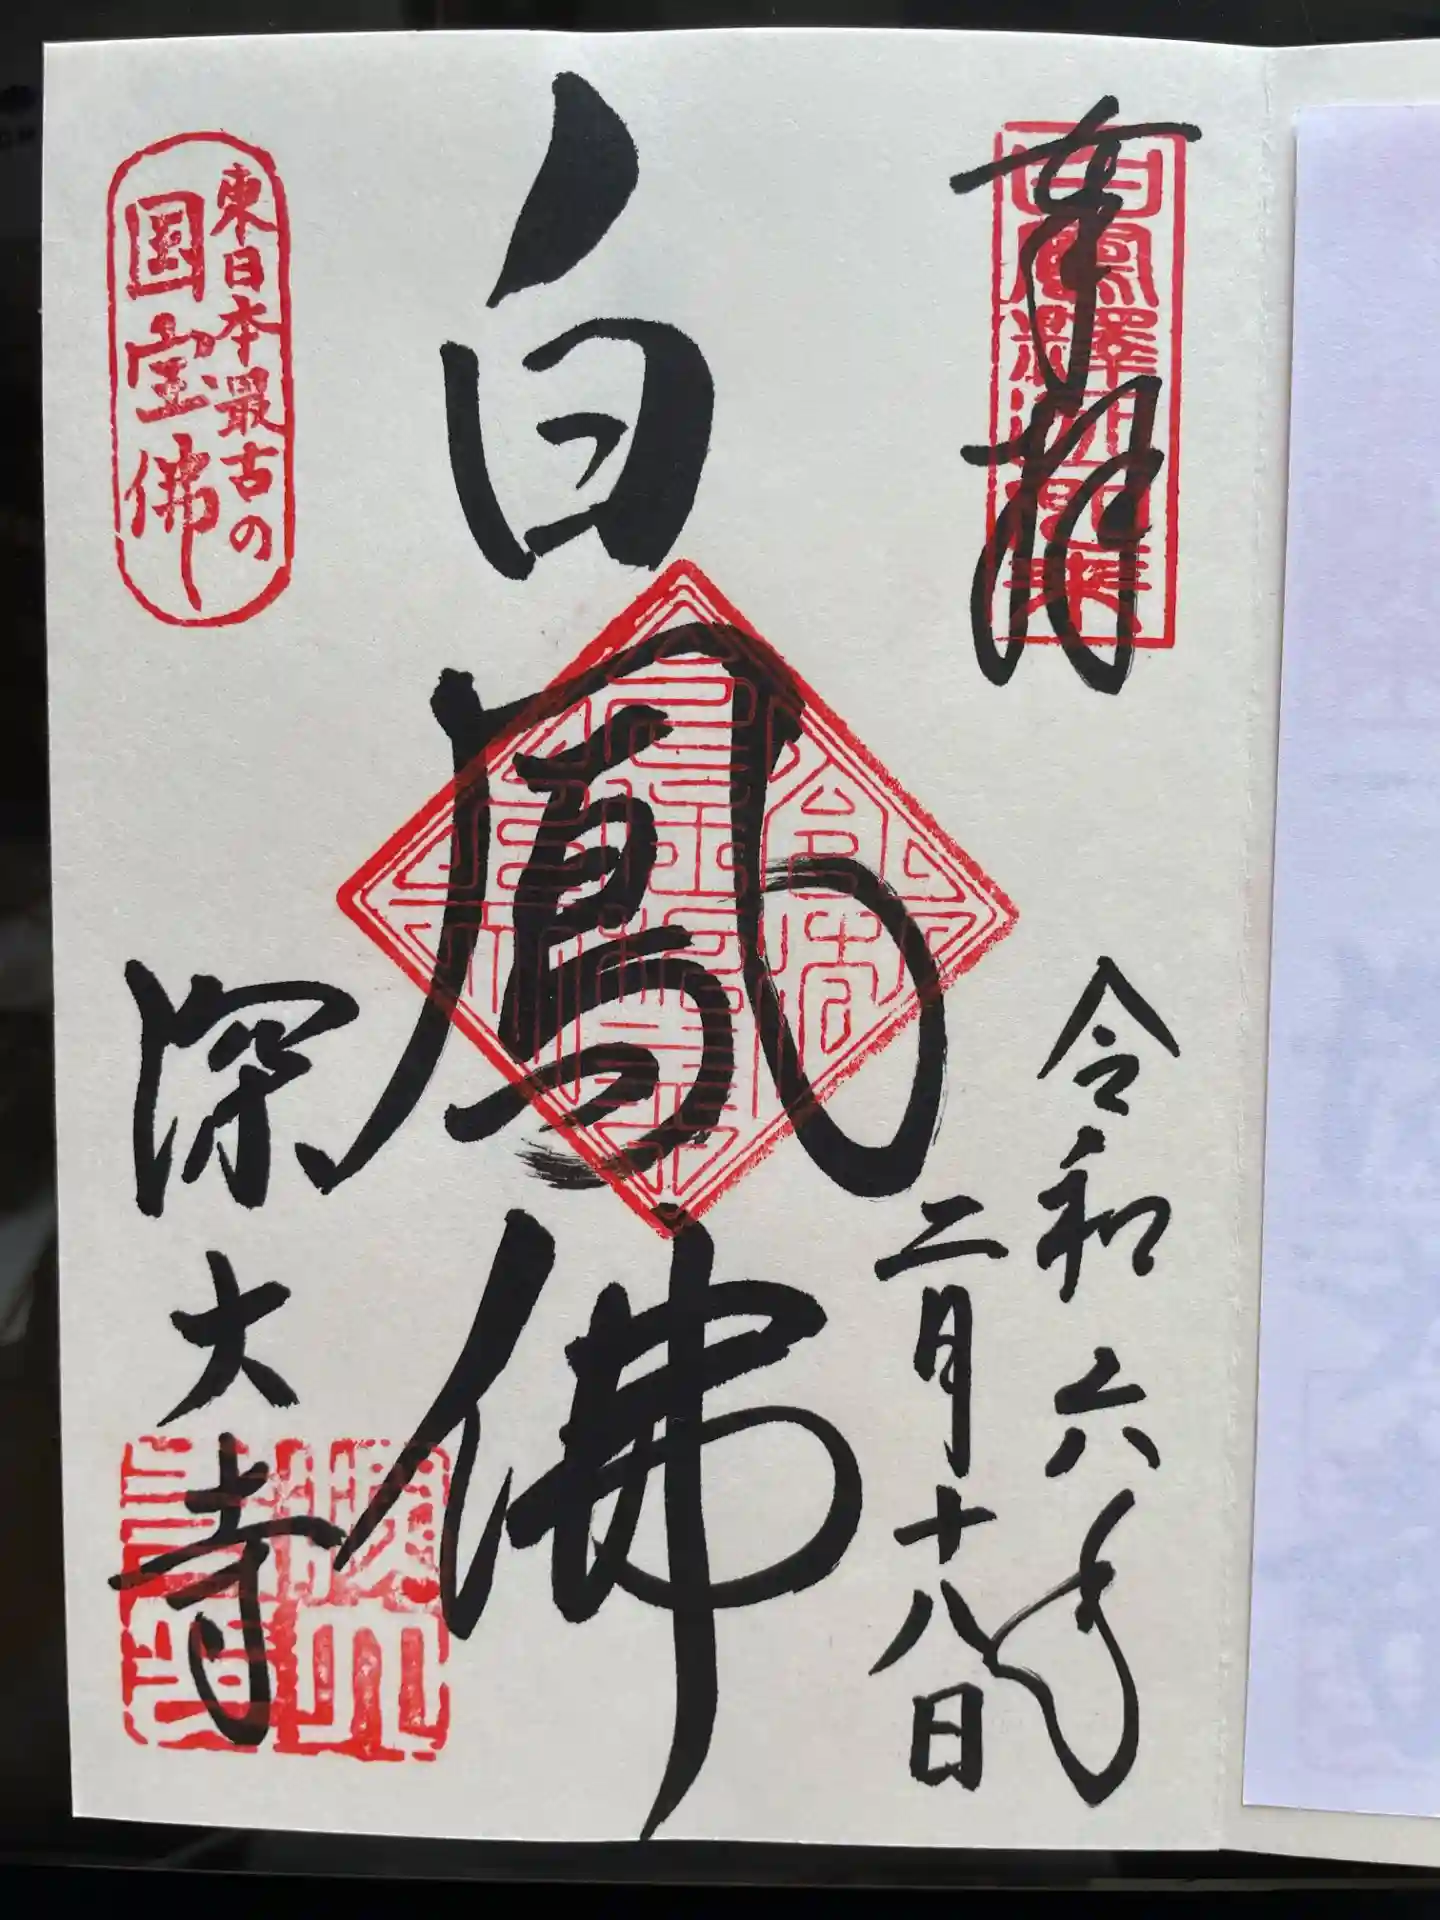 奉拝
白鳳釋迦如来
令和六年
二月十八日
白鳳佛
東日本最古の
国宝佛
深大寺